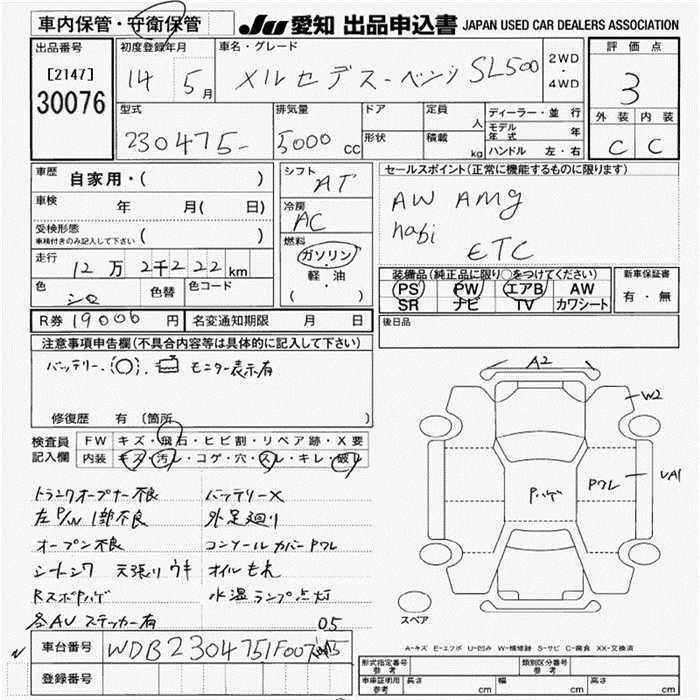 車内保管・守衛保管
JU 愛知 出品申込書 JAPAN USED CAR DEALERS ASSOCIATION
出品番号
[2147]
30076
初度登録年月
14 5月
車名・グレード
メルセデス-ベンツ SL500
2WD
・
4WD
評価点
3
外装 内装
C C
型式
230475-
排気量
5000 cc
ドア
形状
定員 人
積載 kg
ディーラー・並行
モデル年式 年
ハンドル 左・右
車歴 自家用・( )
車検 年 月( 日)
受検形態
車検付きのみ記入して下さい ( )
走行 12万2千222km
色 シロ 色替 色コード
シフト AT
冷房 AC
燃料
ガソリン
・
軽・油
( )
セールスポイント(正常に機能するものに限ります)
AW AMG
nabi
ETC
装備品(純正品に限り○をつけてください)
PS PW エアB AW
SR ナビ TV カワシート
新車保証書
有・無
R券 19006円 名変通知期限 月 日
後日品
注意事項申告欄(不具合内容等は具体的に記入して下さい)
バッテリー. モニター表示有
修復歴 有 (箇所 )
検査員
記入欄
FW キズ・飛石・ヒビ割・リペア跡・X要
内装 キズ・汚レ・コゲ・穴・スレ・キレ・破レ
トランクオープナー不良 バッテリーX
左P/W 1部不良 外足廻り
オープン不良 コンソールカバーワレ
シートシワ 天張りウキ オイルもれ
Rスポイハゲ 水温ランプ点灯
各AVステッカー有
05
A2
W2
UA1
Pハゲ
ワレ
スペア
A-キズ E-エクボ U-凹み W-補修跡 S-サビ C-腐食 XX-交換済
N
車台番号 WDB2304751F007
登録番号
形式指定番号 参考
類別区分番号 参考
車庫証明用 参考 長さ cm 幅 cm 高さ cm